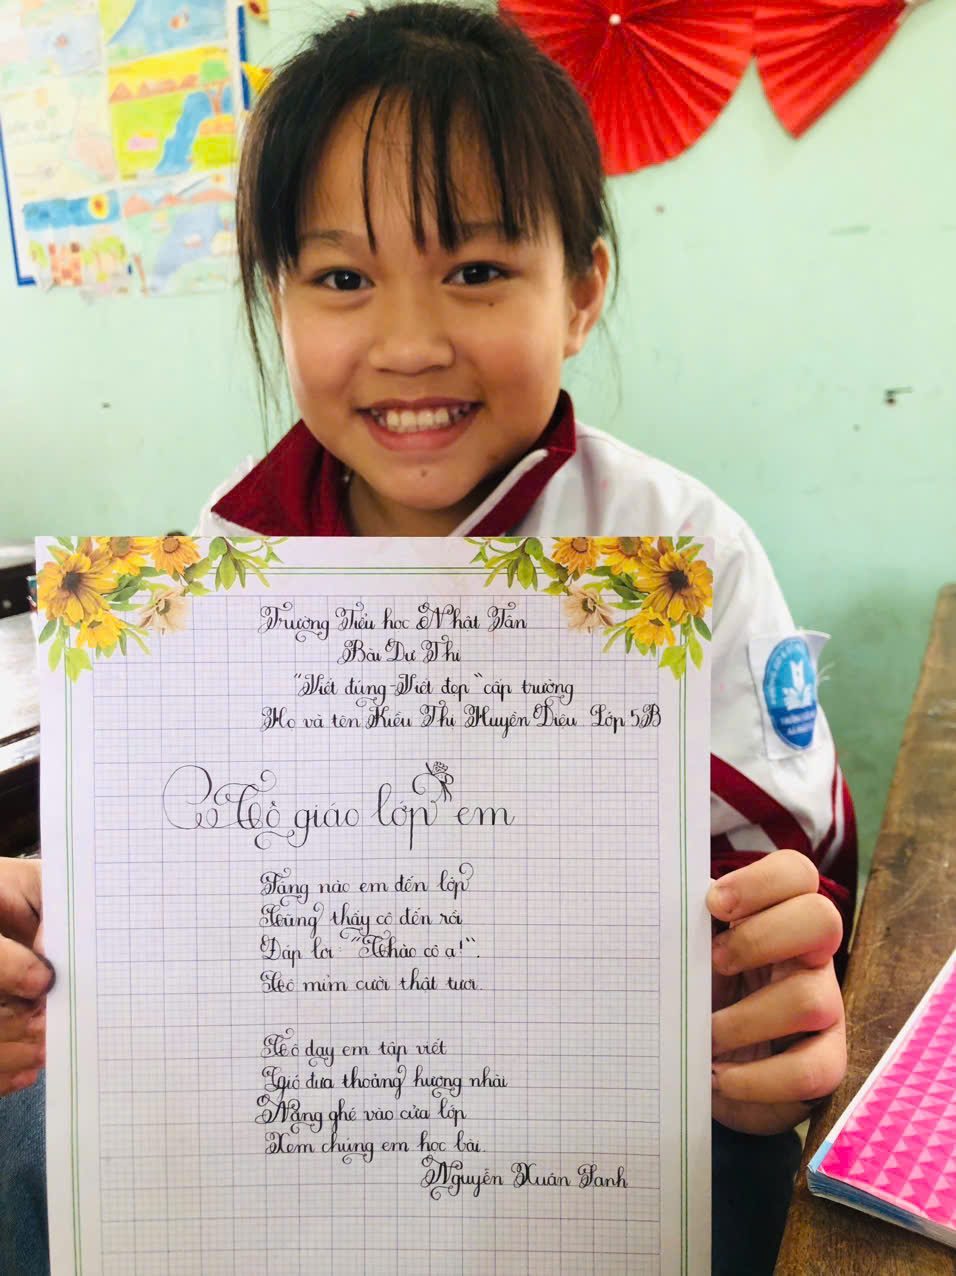 Trường Tiểu học Nhật Tân
Bài Dự Thi
"Viết đúng - Viết đẹp" cấp trường
Họ và tên Kiều Thị Huyền Diệu Lớp 5B
Cô giáo lớp em
Sáng nào em đến lớp
Cũng thấy cô đến rồi
Đáp lời: "Chào cô ạ!".
Cô mỉm cười thật tươi.
Cô dạy em tập viết
Gió đưa thoảng hương nhài
Nắng ghé vào cửa lớp
Xem chúng em học bài.
Nguyễn Xuân Sanh